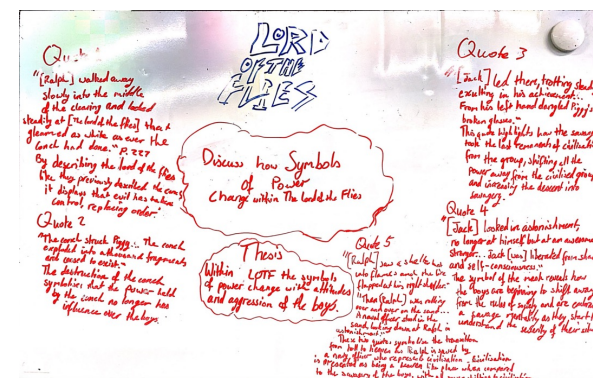 LORD
OF THE
FLIES
Discuss how Symbols
of Power
Change within The Lord of the Flies
Thesis
Within LOTF the symbols
of power change with attitudes
and aggression of the boys.
Quote 1
"[Ralph] walked away
slowly into the middle
of the clearing and looked
steadily at [The lord of the flies] that
gleamed as white as ever the
Conch had done." P. 227
By describing the lord of the flies
like they previously described the conch
it displays that evil has taken
control, replacing order.
Quote 2
"The conch struck Piggy... The conch
exploded into a thousand fragments
and ceased to exist."
The destruction of the conch
symbolises that the power held
by the conch no longer has
influence over the boys.
Quote 3
"[Jack] led there, trotting steadily
exulting in his achievement...
From his left hand dangled Piggy's
broken glasses."
This quote highlights how the savages
took the last remenants of civilisation
from the group, shifting all the
power away from the civilised group
and increasing the descent into
savagery.
Quote 4
"[Jack] looked in astonishment,
no longer at himself but at an awesome
stranger... Jack [was] liberated from shame
and self-consciousness."
symbol of the mask reveals how
the boys are beginning to shift away
from the rules of society and are
a savage mentality as they start
understand the severity of their
Quote 5
"[Ralph] saw a shelter burst
into flames and the fire
flapped at his right shoulder."
"Then [Ralph] was rolling
over and over on the sand...
A naval officer stood in the
sand, looking down at Ralph in
astonishment."
These two quotes symbolise the transition
from hell to heaven as Ralph is saved by
a navy officer who represents civilisation. Civilisation
is presented as being a heaven like place when compared
to the savagery of the boys, with